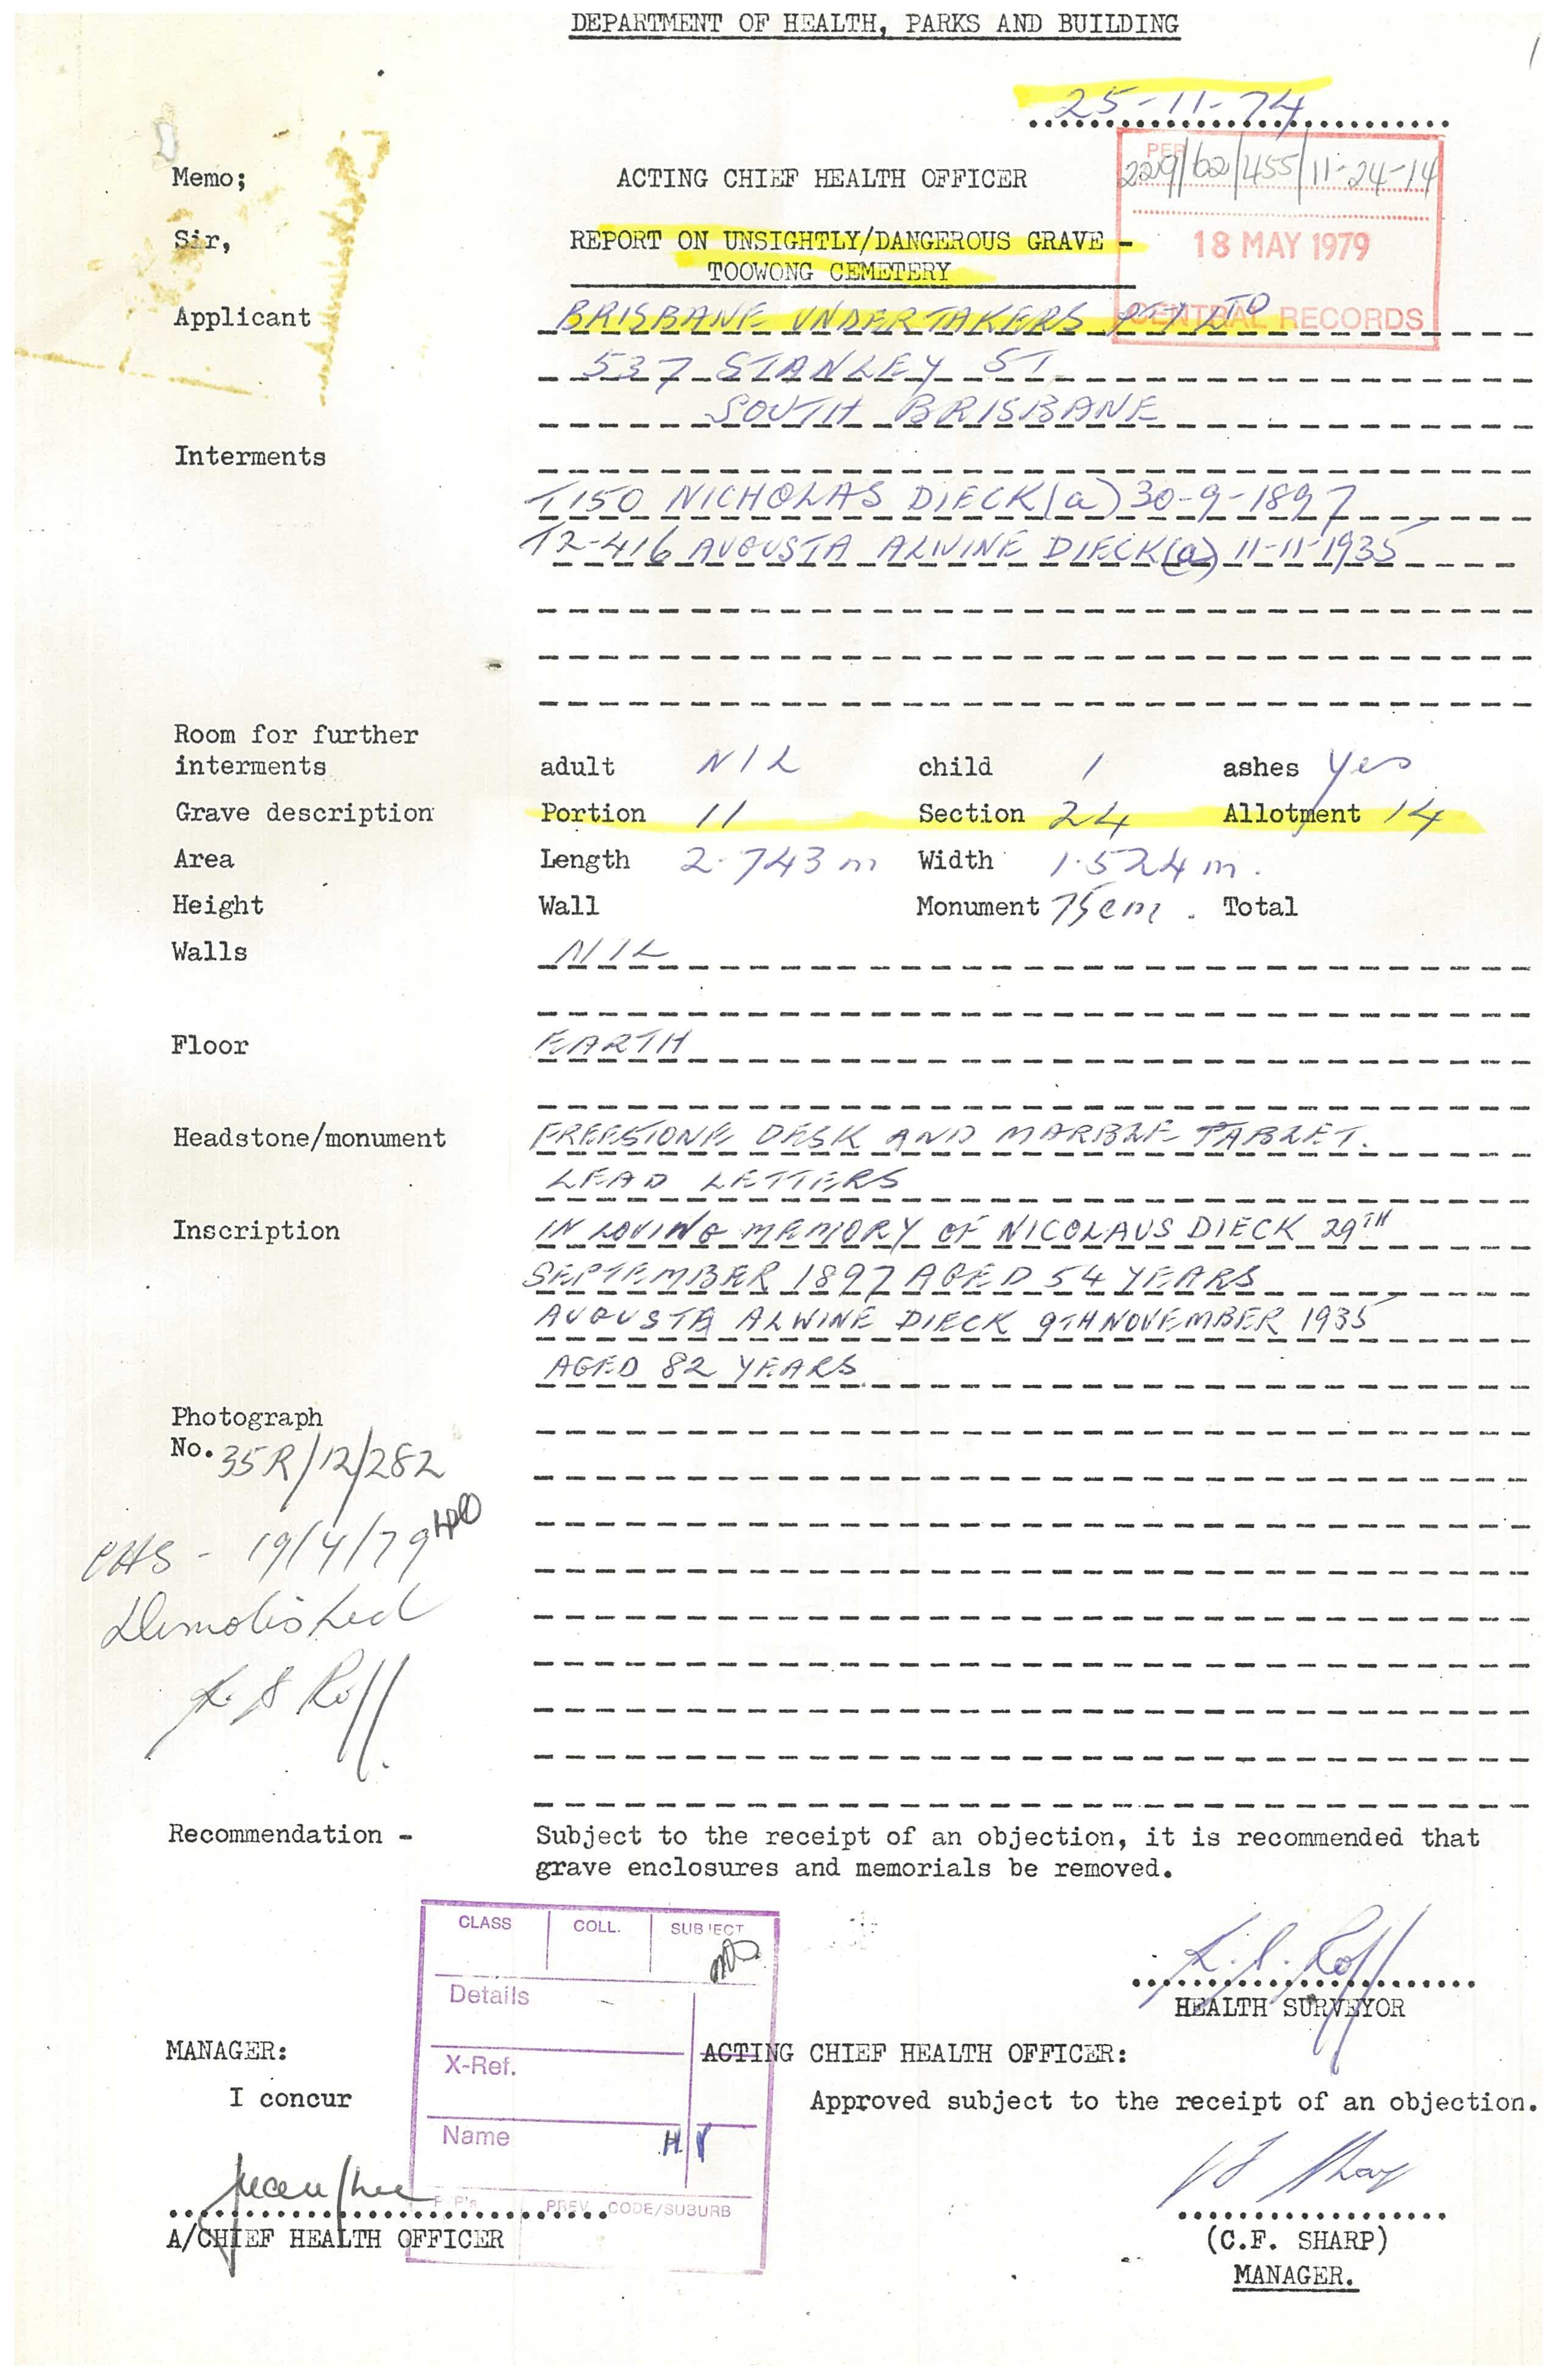 DEPARTMENT OF HEALTH, PARKS AND BUILDING
25-11-74
PER
229/62/455/11-24-14
18 MAY 1979
CENTRAL RECORDS
Memo; ACTING CHIEF HEALTH OFFICER
Sir, REPORT ON UNSIGHTLY/DANGEROUS GRAVE -
TOOWONG CEMETERY
Applicant BRISBANE UNDERTAKERS PTY LTD
537 STANLEY ST
SOUTH BRISBANE
Interments
T150 NICHOLAS DIECK (a) 30-9-1897
T2-416 AUGUSTA ALWINE DIECK (a) 11-11-1935
Room for further
interments adult NIL child 1 ashes yes
Grave description Portion 11 Section 24 Allotment 14
Area Length 2.743 m Width 1.524 m.
Height Wall Monument 75 cm. Total
Walls NIL
Floor EARTH
Headstone/monument FREESTONE DESK AND MARBLE TABLET.
LEAD LETTERS
Inscription IN LOVING MEMORY OF NICOLAUS DIECK 29TH
SEPTEMBER 1897 AGED 54 YEARS
AUGUSTA ALWINE DIECK 9TH NOVEMBER 1935
AGED 82 YEARS
Photograph
No. 35R/12/282
19/4/79
Demolished
K. S. Roff
Recommendation - Subject to the receipt of an objection, it is recommended that
grave enclosures and memorials be removed.
CLASS COLL. SUBJECT
Details
X-Ref.
Name H
PREV. CODE/SUBURB
K. S. Roff
HEALTH SURVEYOR
MANAGER: ACTING CHIEF HEALTH OFFICER:
I concur Approved subject to the receipt of an objection.
A/CHIEF HEALTH OFFICER (C.F. SHARP)
MANAGER.